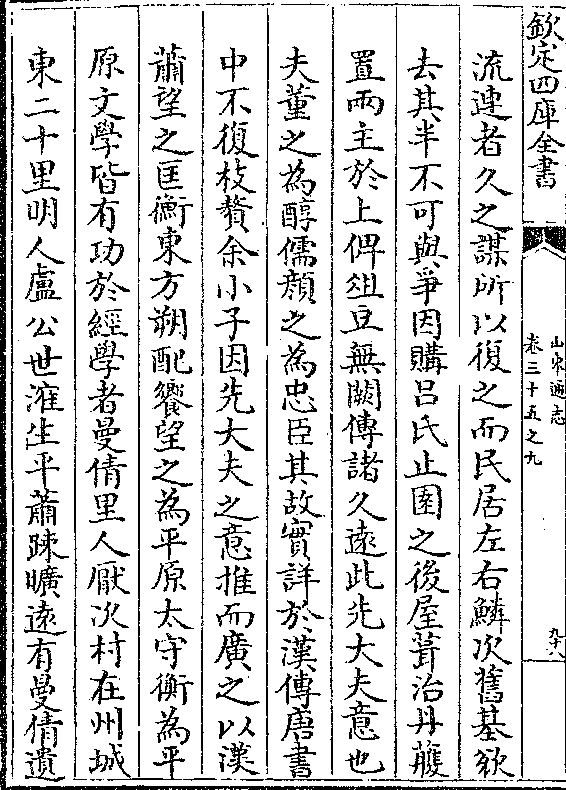 欽定四庫全書
山東通志
卷三十五之九
九十八
流連者久之謀所以復之而民居左右鱗次舊基欲
去其半不可與爭因購呂氏止園之後屋葺治丹雘
置兩主於上俾俎豆無闕傳諸久遠此先大夫意也
夫董之為醇儒顏之為忠臣其故實詳於漢傳唐書
中不復枝贅余小子因先大夫之意推而廣之以漢
蕭望之匡衡東方朔配饗望之為平原太守衡為平
原文學皆有功於經學者曼倩里人厭次村在州城
東二十里明人盧公世㴶生平蕭疎曠遠有曼倩遺